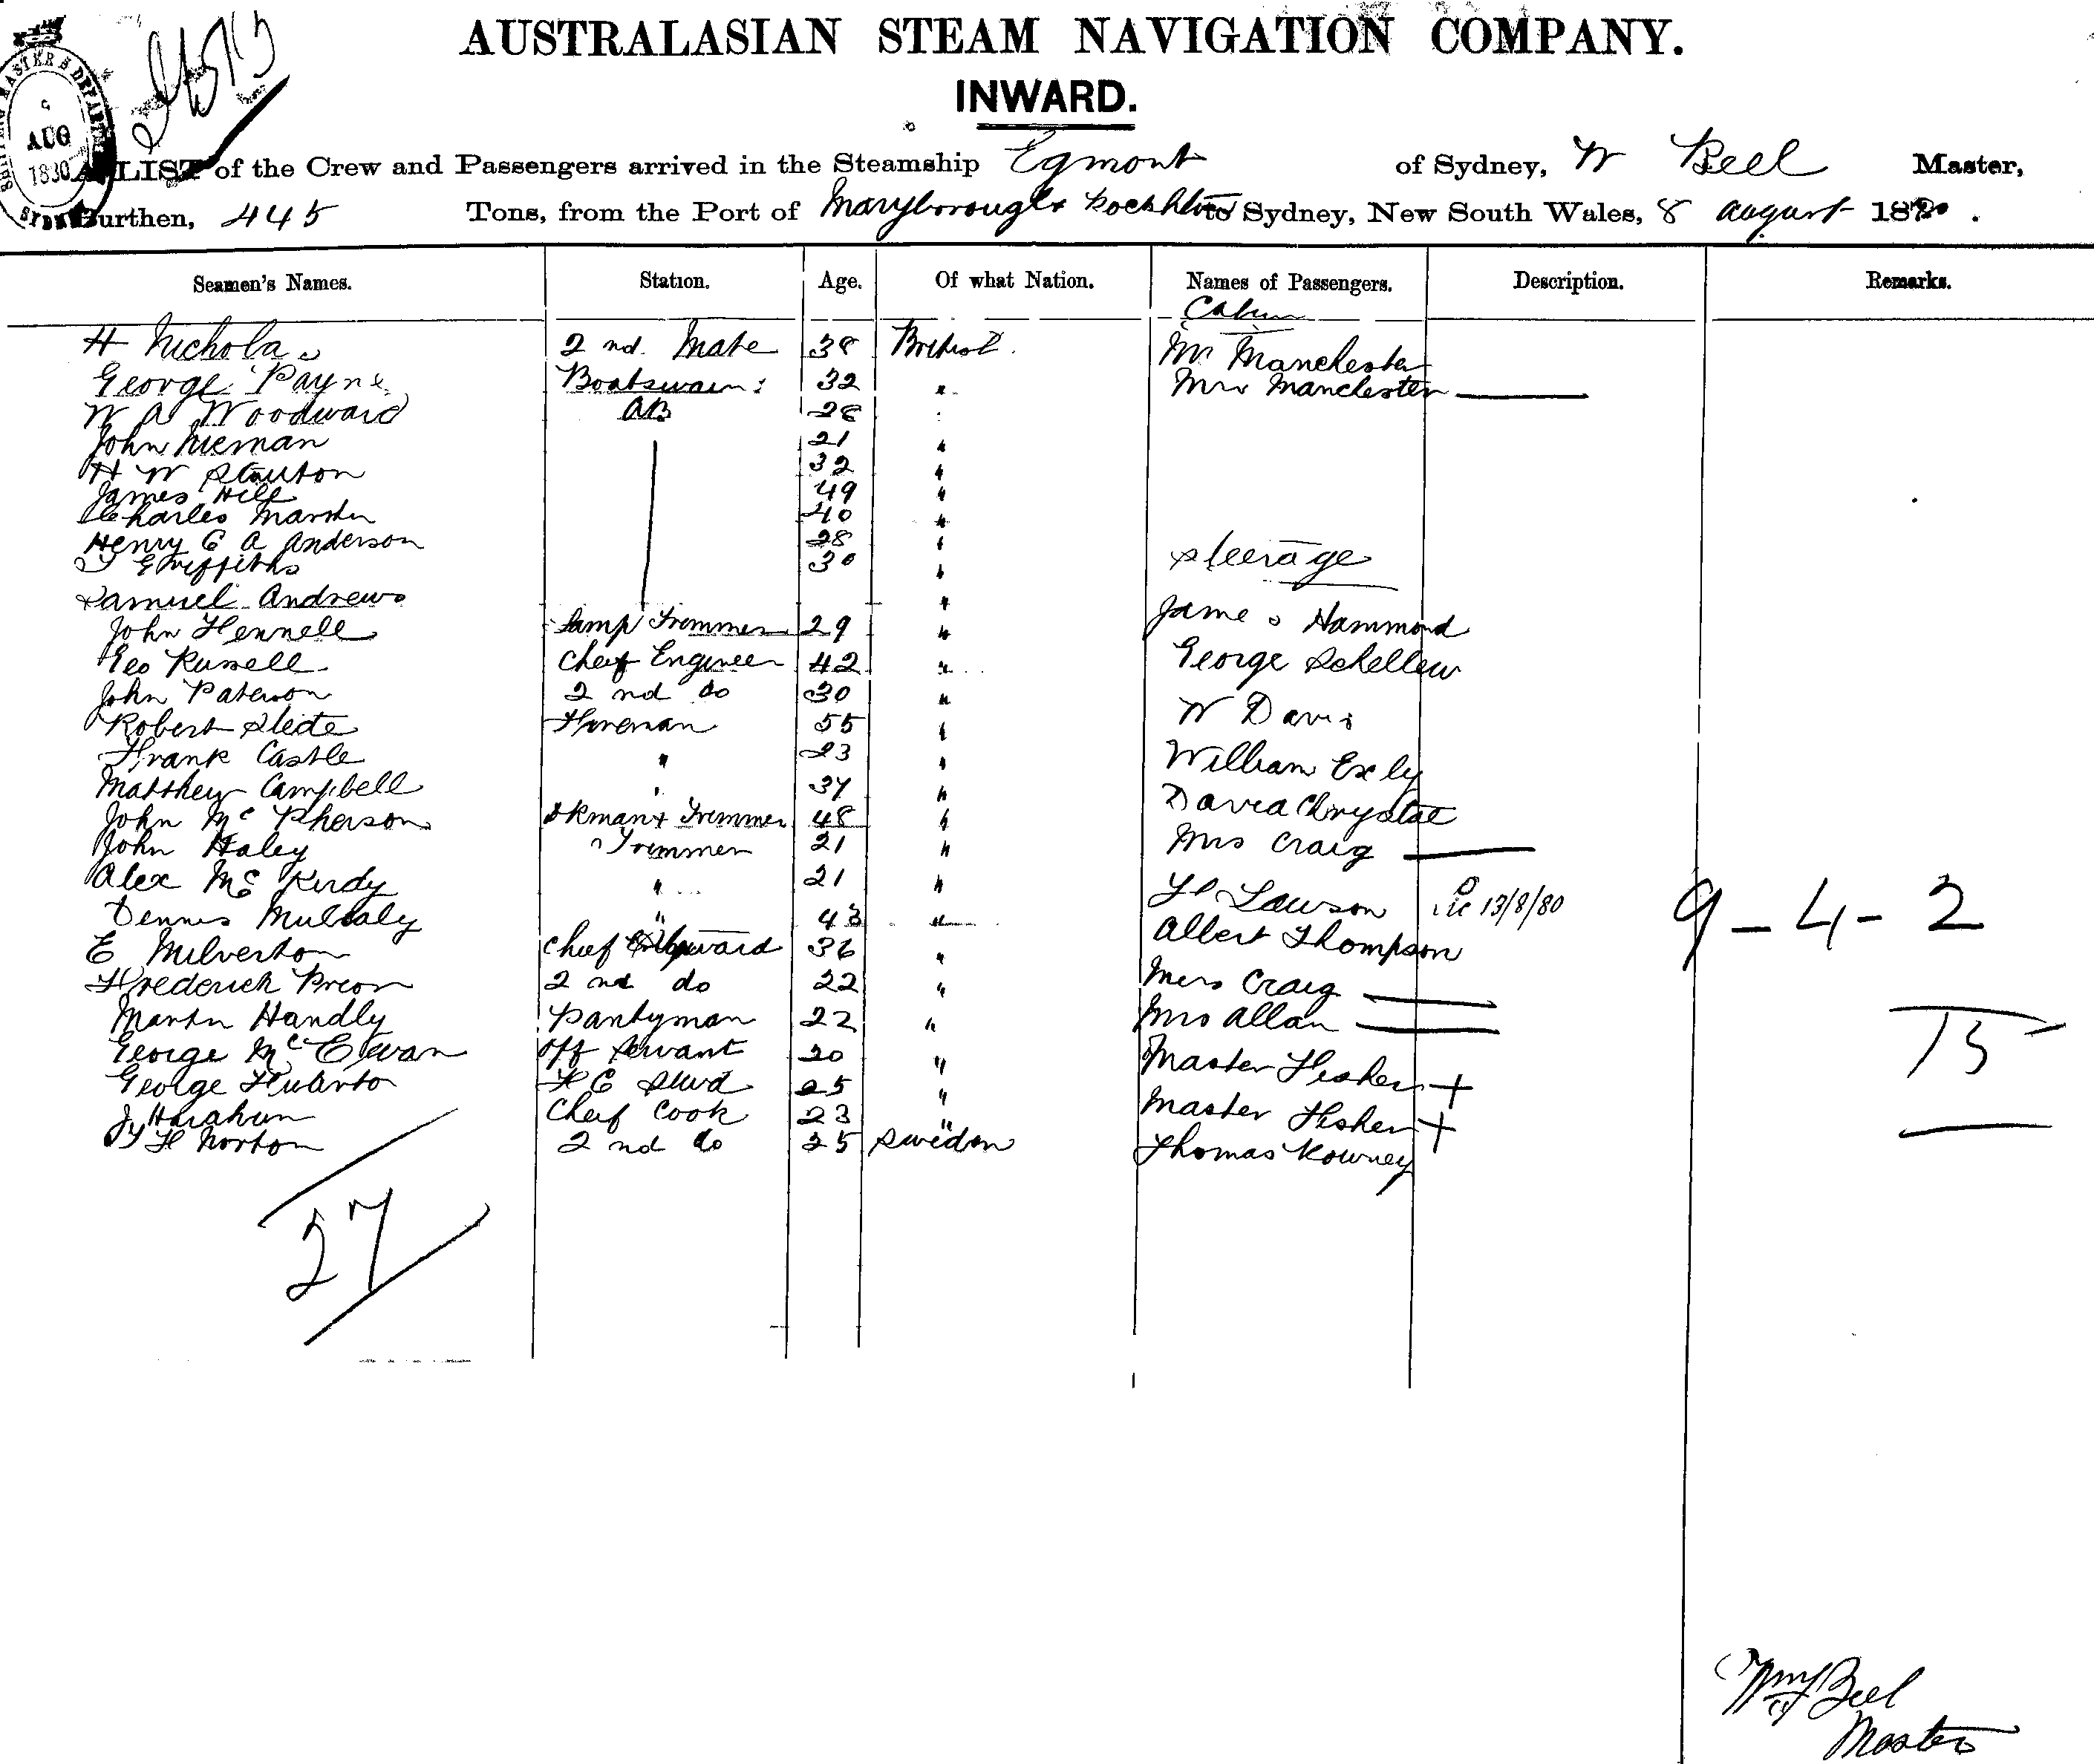 AUSTRALASIAN STEAM NAVIGATION COMPANY.
INWARD.
AUG
1880
A LIST of the Crew and Passengers arrived in the Steamship Egmont of Sydney, W Beel Master,
Burthen, 445 Tons, from the Port of Maryborough & to Sydney, New South Wales, 8 August 1880.
Seamen's Names. Station. Age. Of what Nation. Names of Passengers. Description. Remarks.
Cabin
H Nicholas 2nd. Mate 38 British Mr Manchester
George Payne Boatswain 32 " Mrs Manchester
W A Woodward AB 28 "
John Nieman 21 "
H W Stauton 32 "
James Hill 49 "
Charles Martin 40 "
Henry C A Anderson 28 " Steerage
Griffiths 30 "
Samuel Andrews "
John Fennell Lamp Trimmer 29 " James Hammond
Geo Russell Chief Engineer 42 " George Schellew
John Paterson 2nd do 30 " W Davis
Robert Fireman 55 "
Frank Castle " 23 " William Exly
Matthew Campbell " 37 " David Chrystal
John McPherson & Trimmer 48 " Mrs Craig
John Haley Trimmer 21 "
Alex McKirdy " 21 " Lawson 13/8/80
Dennis Mullaly " 43 " Albert Thompson 9-4-2
E Milverton Chief Steward 36 "
Frederick Prior 2nd do 22 " Miss Craig
Martin Handly Pantryman 22 " Mrs Allan
George McEwan Off Servant 20 " Master Fisher + 15
George F C Stwd 25 "
Chief Cook 23 " Master Fisher +
F Norton 2nd do 25 Sweden Thomas Kowney
27
Wm Beel
Master